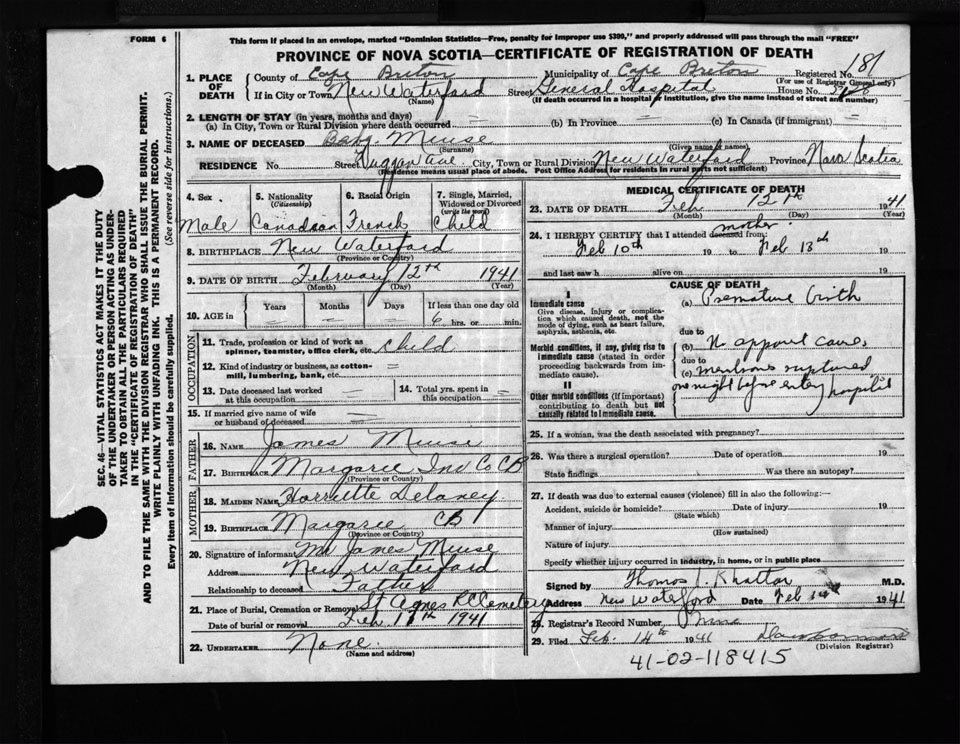 FORM 6
This form if placed in an envelope, marked "Dominion Statistics—Free, penalty for improper use $300," and properly addressed will pass through the mail "FREE"
PROVINCE OF NOVA SCOTIA—CERTIFICATE OF REGISTRATION OF DEATH
SEC. 46—VITAL STATISTICS ACT MAKES IT THE DUTY
OF THE UNDERTAKER OR PERSON ACTING AS UNDER-
TAKER TO OBTAIN ALL THE PARTICULARS REQUIRED
IN THE "CERTIFICATE OF REGISTRATION OF DEATH"
AND TO FILE THE SAME WITH THE DIVISION REGISTRAR WHO SHALL ISSUE THE BURIAL PERMIT.
WRITE PLAINLY WITH UNFADING INK. THIS IS A PERMANENT RECORD.
Every item of Information should be carefully supplied. (See reverse side for instructions.)
1. PLACE OF DEATH County of Cape Breton Municipality of Cape Breton Registered No. 181
(For use of Registrar General only)
If in City or Town New Waterford Street General Hospital House No.
(Name) (If death occurred in a hospital or institution, give the name instead of street and number)
2. LENGTH OF STAY (in years, months and days)
(a) In City, Town or Rural Division where death occurred (b) In Province (c) In Canada (if immigrant)
3. NAME OF DECEASED Baby Meuse
(Surname) (Given name or names)
RESIDENCE No. Street Duggan Ave. City, Town or Rural Division New Waterford Province Nova Scotia
(Residence means usual place of abode. Post Office Address for residents in rural parts not sufficient)
4. Sex 5. Nationality (Citizenship) 6. Racial Origin 7. Single, Married, Widowed or Divorced (write the word)
Male Canadian French Child
8. BIRTHPLACE New Waterford
(Province or Country)
9. DATE OF BIRTH February 12th 1941
(Month) (Day) (Year)
10. AGE in Years Months Days If less than one day old
6 hrs. or min.
OCCUPATION
11. Trade, profession or kind of work as spinner, teamster, office clerk, etc. Child
12. Kind of industry or business, as cotton-mill, lumbering, bank, etc.
13. Date deceased last worked at this occupation 14. Total yrs. spent in this occupation
15. If married give name of wife or husband of deceased
FATHER
16. NAME James Muise
17. BIRTHPLACE Margaree Inv Co CB
(Province or Country)
MOTHER
18. MAIDEN NAME Harriette Delaney
19. BIRTHPLACE Margaree CB
(Province or Country)
20. Signature of informant Mr James Muse
Address New Waterford
Relationship to deceased Father
21. Place of Burial, Cremation or Removal St Agnes RC Cemetery
Date of burial or removal Feb 1941
22. UNDERTAKER None
(Name and address)
MEDICAL CERTIFICATE OF DEATH
23. DATE OF DEATH Feb 12th 1941
(Month) (Day) (Year)
24. I HEREBY CERTIFY that I attended deceased from: mother
Feb 10th 19 to Feb 13th 19
and last saw h alive on 19
CAUSE OF DEATH
I
Immediate cause (a) Premature birth
Give disease, injury or complication which caused death, not the mode of dying, such as heart failure, asphyxia, asthenia, etc.
due to
Morbid conditions, if any, giving rise to immediate cause (stated in order proceeding backwards from immediate cause). (b) No apparent cause,
due to
(c) ruptured
II one night before entry hospital
Other morbid conditions (if important) contributing to death but not causally related to immediate cause.
25. If a woman, was the death associated with pregnancy?
26. Was there a surgical operation? Date of operation 19
State findings Was there an autopsy?
27. If death was due to external causes (violence) fill in also the following:—
Accident, suicide or homicide? Date of injury 19
(State which)
Manner of injury
(How sustained)
Nature of injury
Specify whether injury occurred in Industry, in home, or in public place
Signed by Thomas J. Khattar M.D.
Address New Waterford Date Feb 1941
28. Registrar's Record Number
29. Filed Feb. 14th 1941
(Division Registrar)
41-02-118415